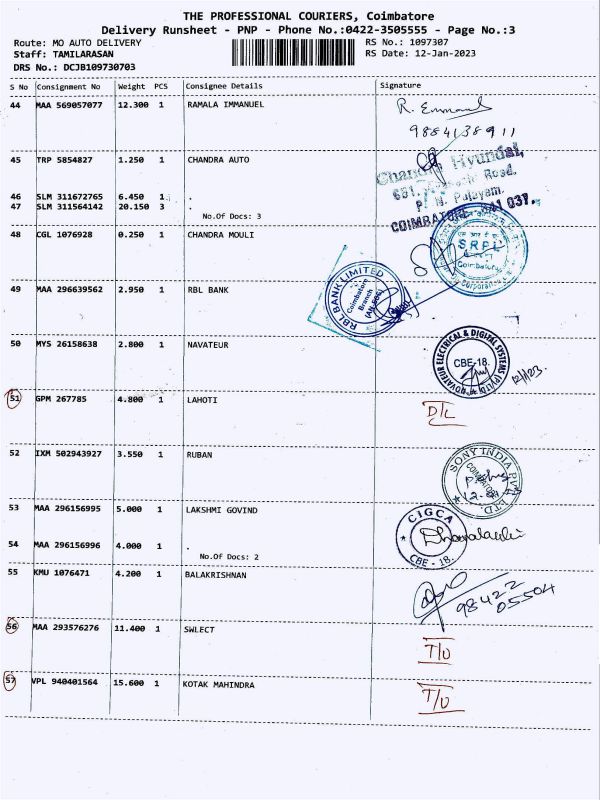 THE PROFESSIONAL COURIERS, Coimbatore
Delivery Runsheet - PNP - Phone No.:0422-3505555 - Page No.:3
Route: MO AUTO DELIVERY RS No.: 1097307
Staff: TAMILARASAN RS Date: 12-Jan-2023
DRS No.: DCJB109730703
S No Consignment No Weight PCS Consignee Details Signature
44 MAA 569057077 12.300 1 RAMALA IMMANUEL R. Emmanuel
9884138911
45 TRP 5854827 1.250 1 CHANDRA AUTO
Chandra Hyundai,
Road,
46 SLM 311672765 6.450 1 .
47 SLM 311564142 20.150 3 .
No.Of Docs: 3
COIMBATORE 641 037.
48 CGL 1076928 0.250 1 CHANDRA MOULI
SRPL
Coimbatore
49 MAA 296639562 2.950 1 RBL BANK
RBL BANK LIMITED
Coimbatore
Branch
50 MYS 26158638 2.800 1 NAVATEUR
NOVATEUR ELECTRICAL & DIGITAL SYSTEMS
CBE-18.
12/1/23.
51 GPM 267785 4.800 1 LAHOTI D/L
52 IXM 502943927 3.550 1 RUBAN
SONY INDIA PVT. LTD.
53 MAA 296156995 5.000 1 LAKSHMI GOVIND
CIGCA
54 MAA 296156996 4.000 1 .
No.Of Docs: 2
CBE - 18.
55 KMU 1076471 4.200 1 BALAKRISHNAN
98422
05504
56 MAA 293576276 11.400 1 SWLECT T/U
57 VPL 940401564 15.600 1 KOTAK MAHINDRA T/U